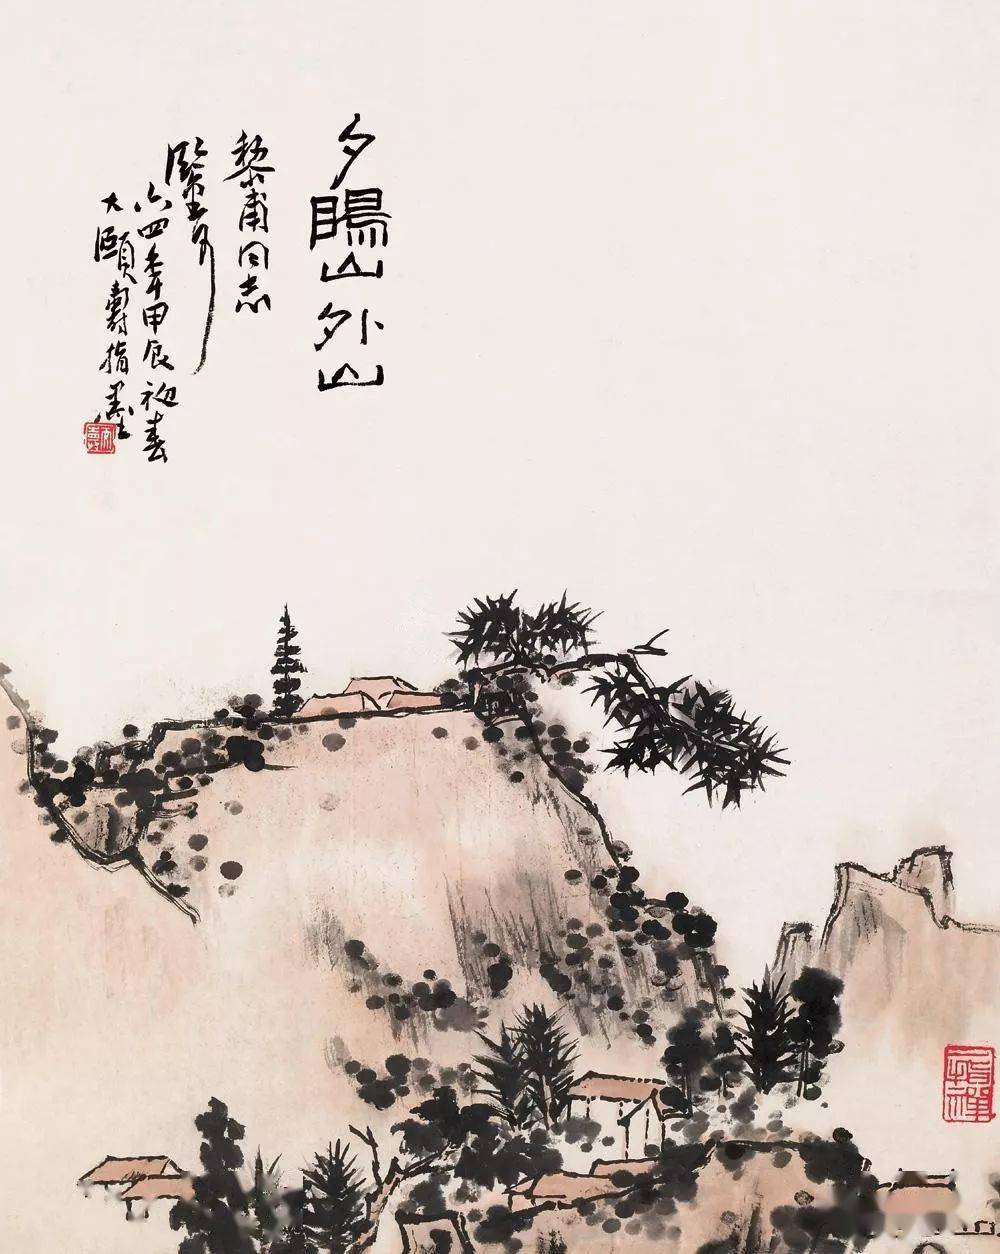 夕暘山外山
黎甫同志
鑒
六四年甲辰初春
大頤壽指墨
一指禪